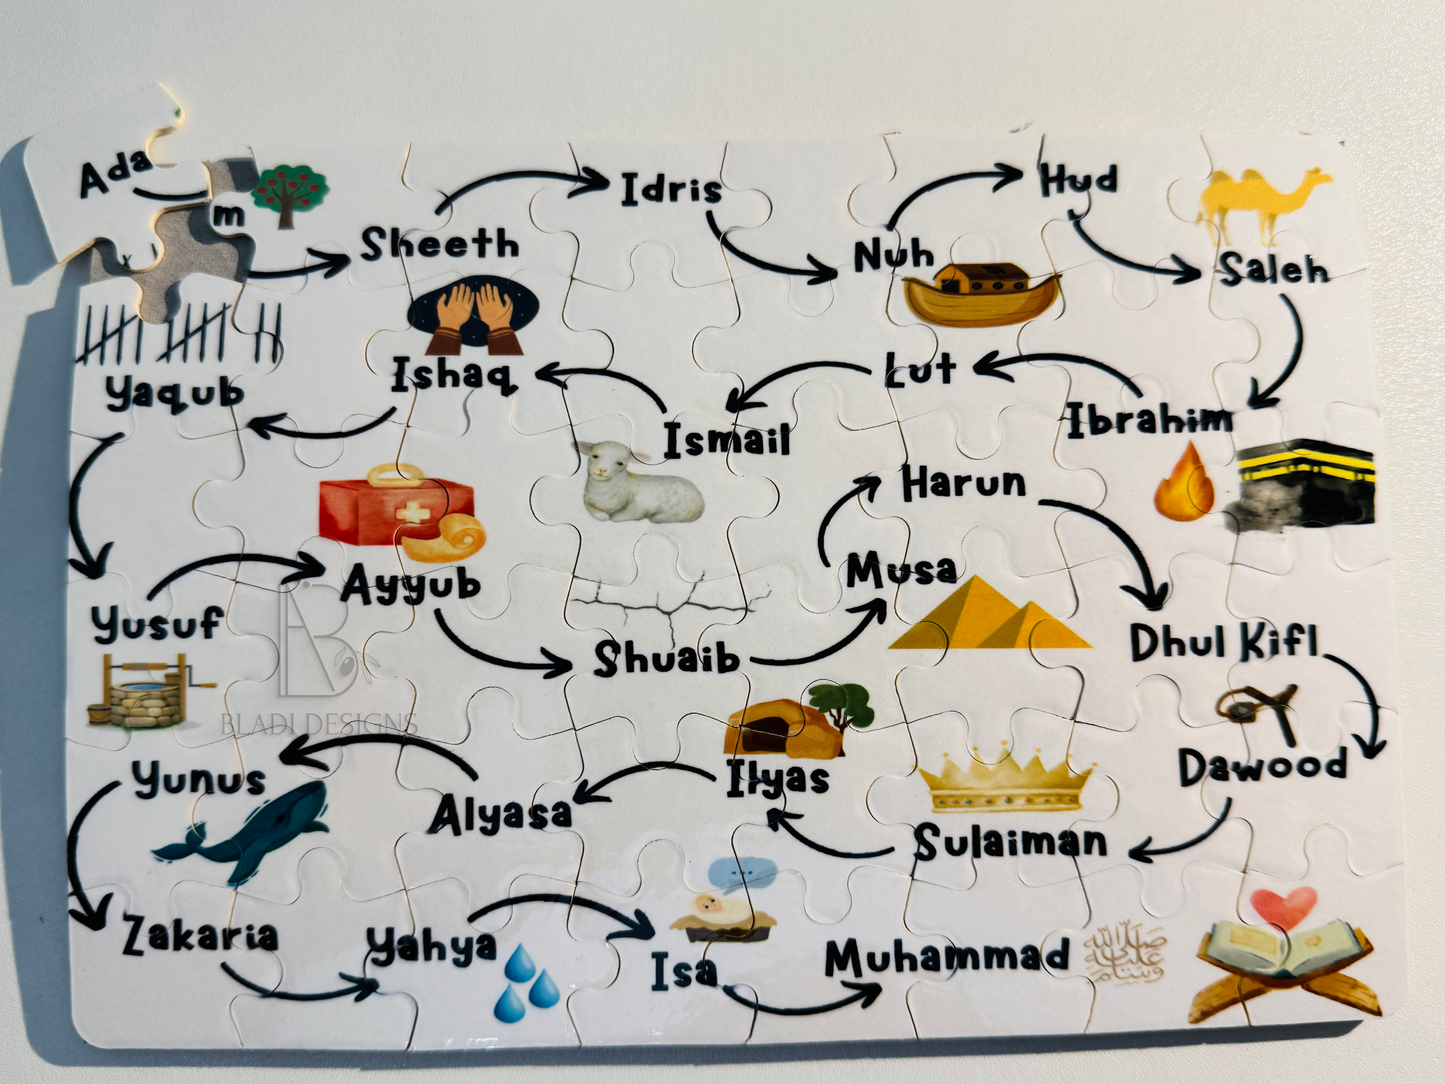 Adam
Sheeth
Idris
Nuh
Hud
Saleh
Ibrahim
Lut
Ismail
Ishaq
Yaqub
Yusuf
Ayyub
Shuaib
Musa
Harun
Dhul Kifl
Dawood
Sulaiman
Ilyas
Alyasa
Yunus
Zakaria
Yahya
Isa
Muhammad
صلى الله عليه وسلم
BLADI DESIGNS